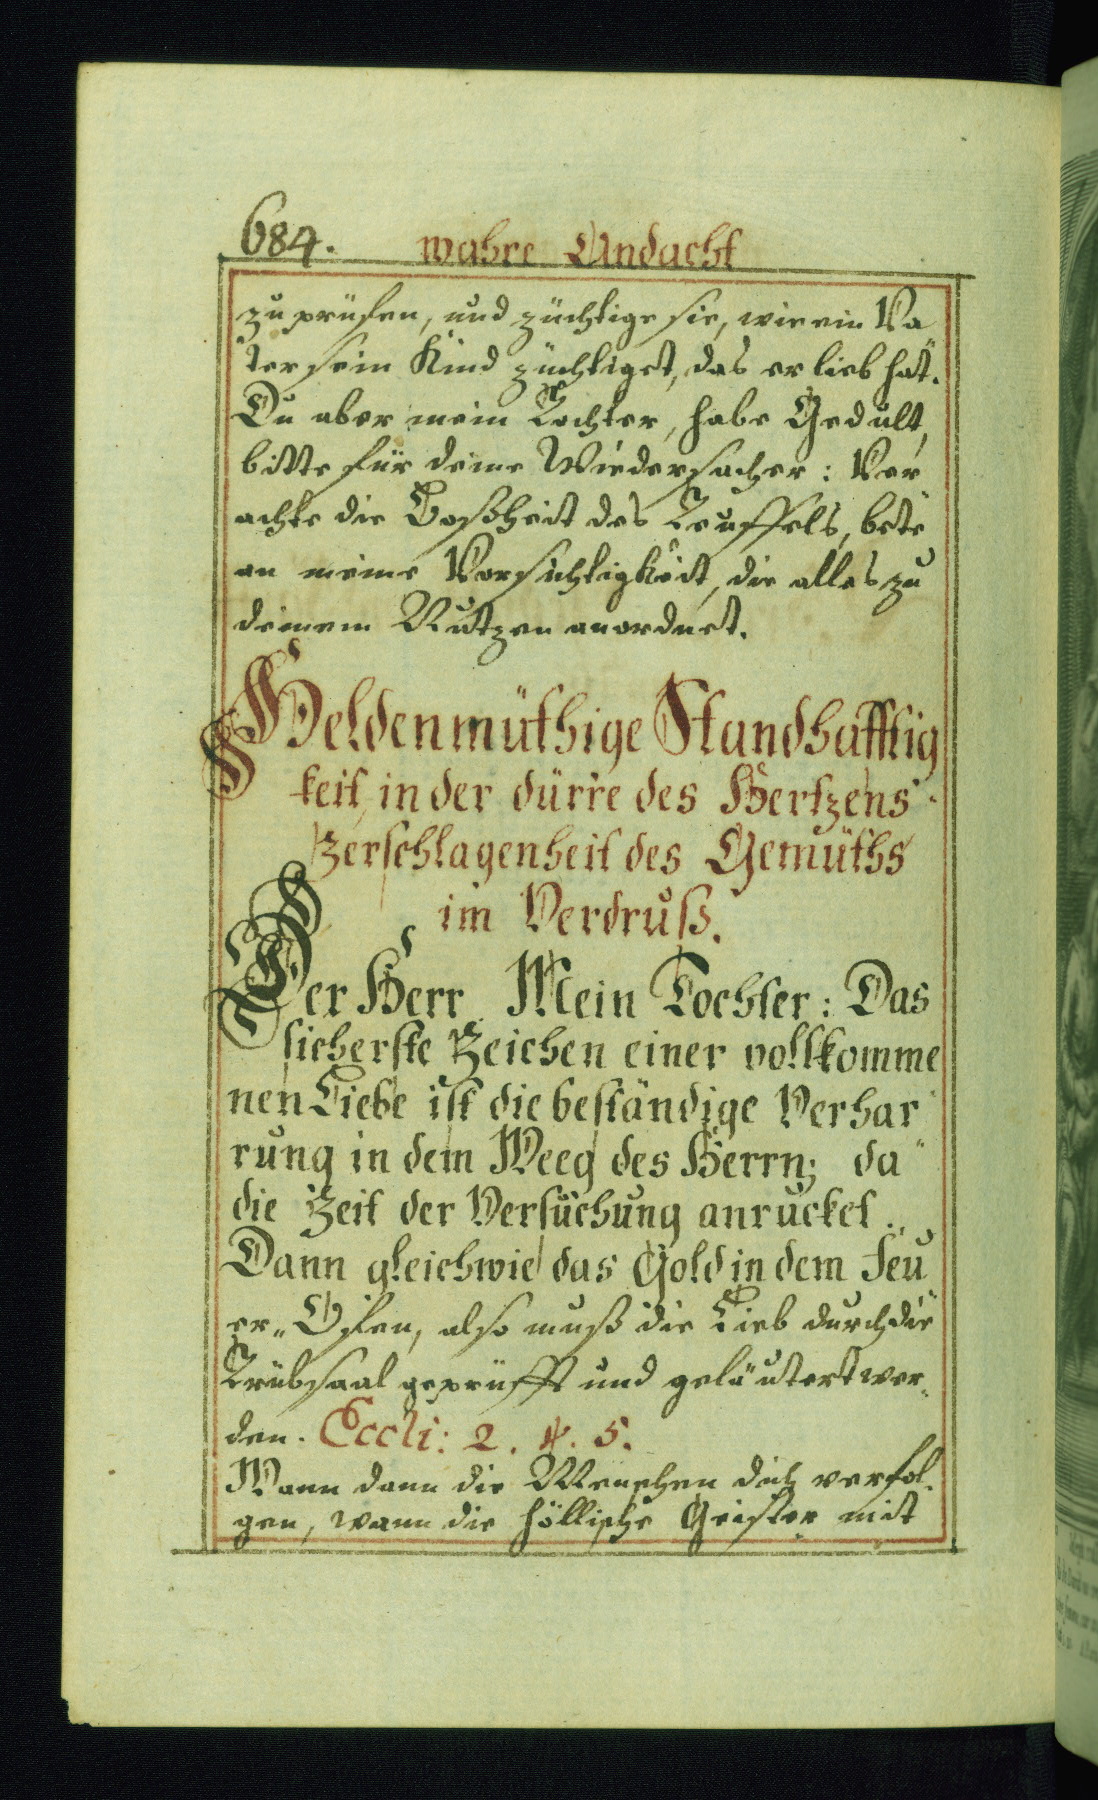 684. wahre Andacht
zu prüfen, und züchtige sie, wie ein Va
ter sein Kind züchtiget, das er lieb hat.
Du aber mein Tochter, habe Gedult,
bitte für deine Wiedersacher: Ver
achte die Boßheit des Teuffels, bete
an meine Vorsichtigkeit, die alles zu
deinem Nutzen anordnet.
Heldenmüthige Standhafftig
keit, in der dürre des Hertzens
Zerschlagenheit des Gemüths
im Verdruß.
Der Herr. Mein Tochter: Das
sicherste Zeichen einer vollkomme
nen Liebe ist die beständige Verhar
rung in dem Weeg des Herrn; da
die Zeit der Versuchung anrucket.
Dann gleichwie das Gold in dem Feu
er-Ofen, also muß die Lieb durch die
Trübsaal geprüfft und geläutert wer-
den. Eccli: 2. ℣. 5.
Wann dann die Menschen dich verfol-
gen, wann die höllische Geister mit